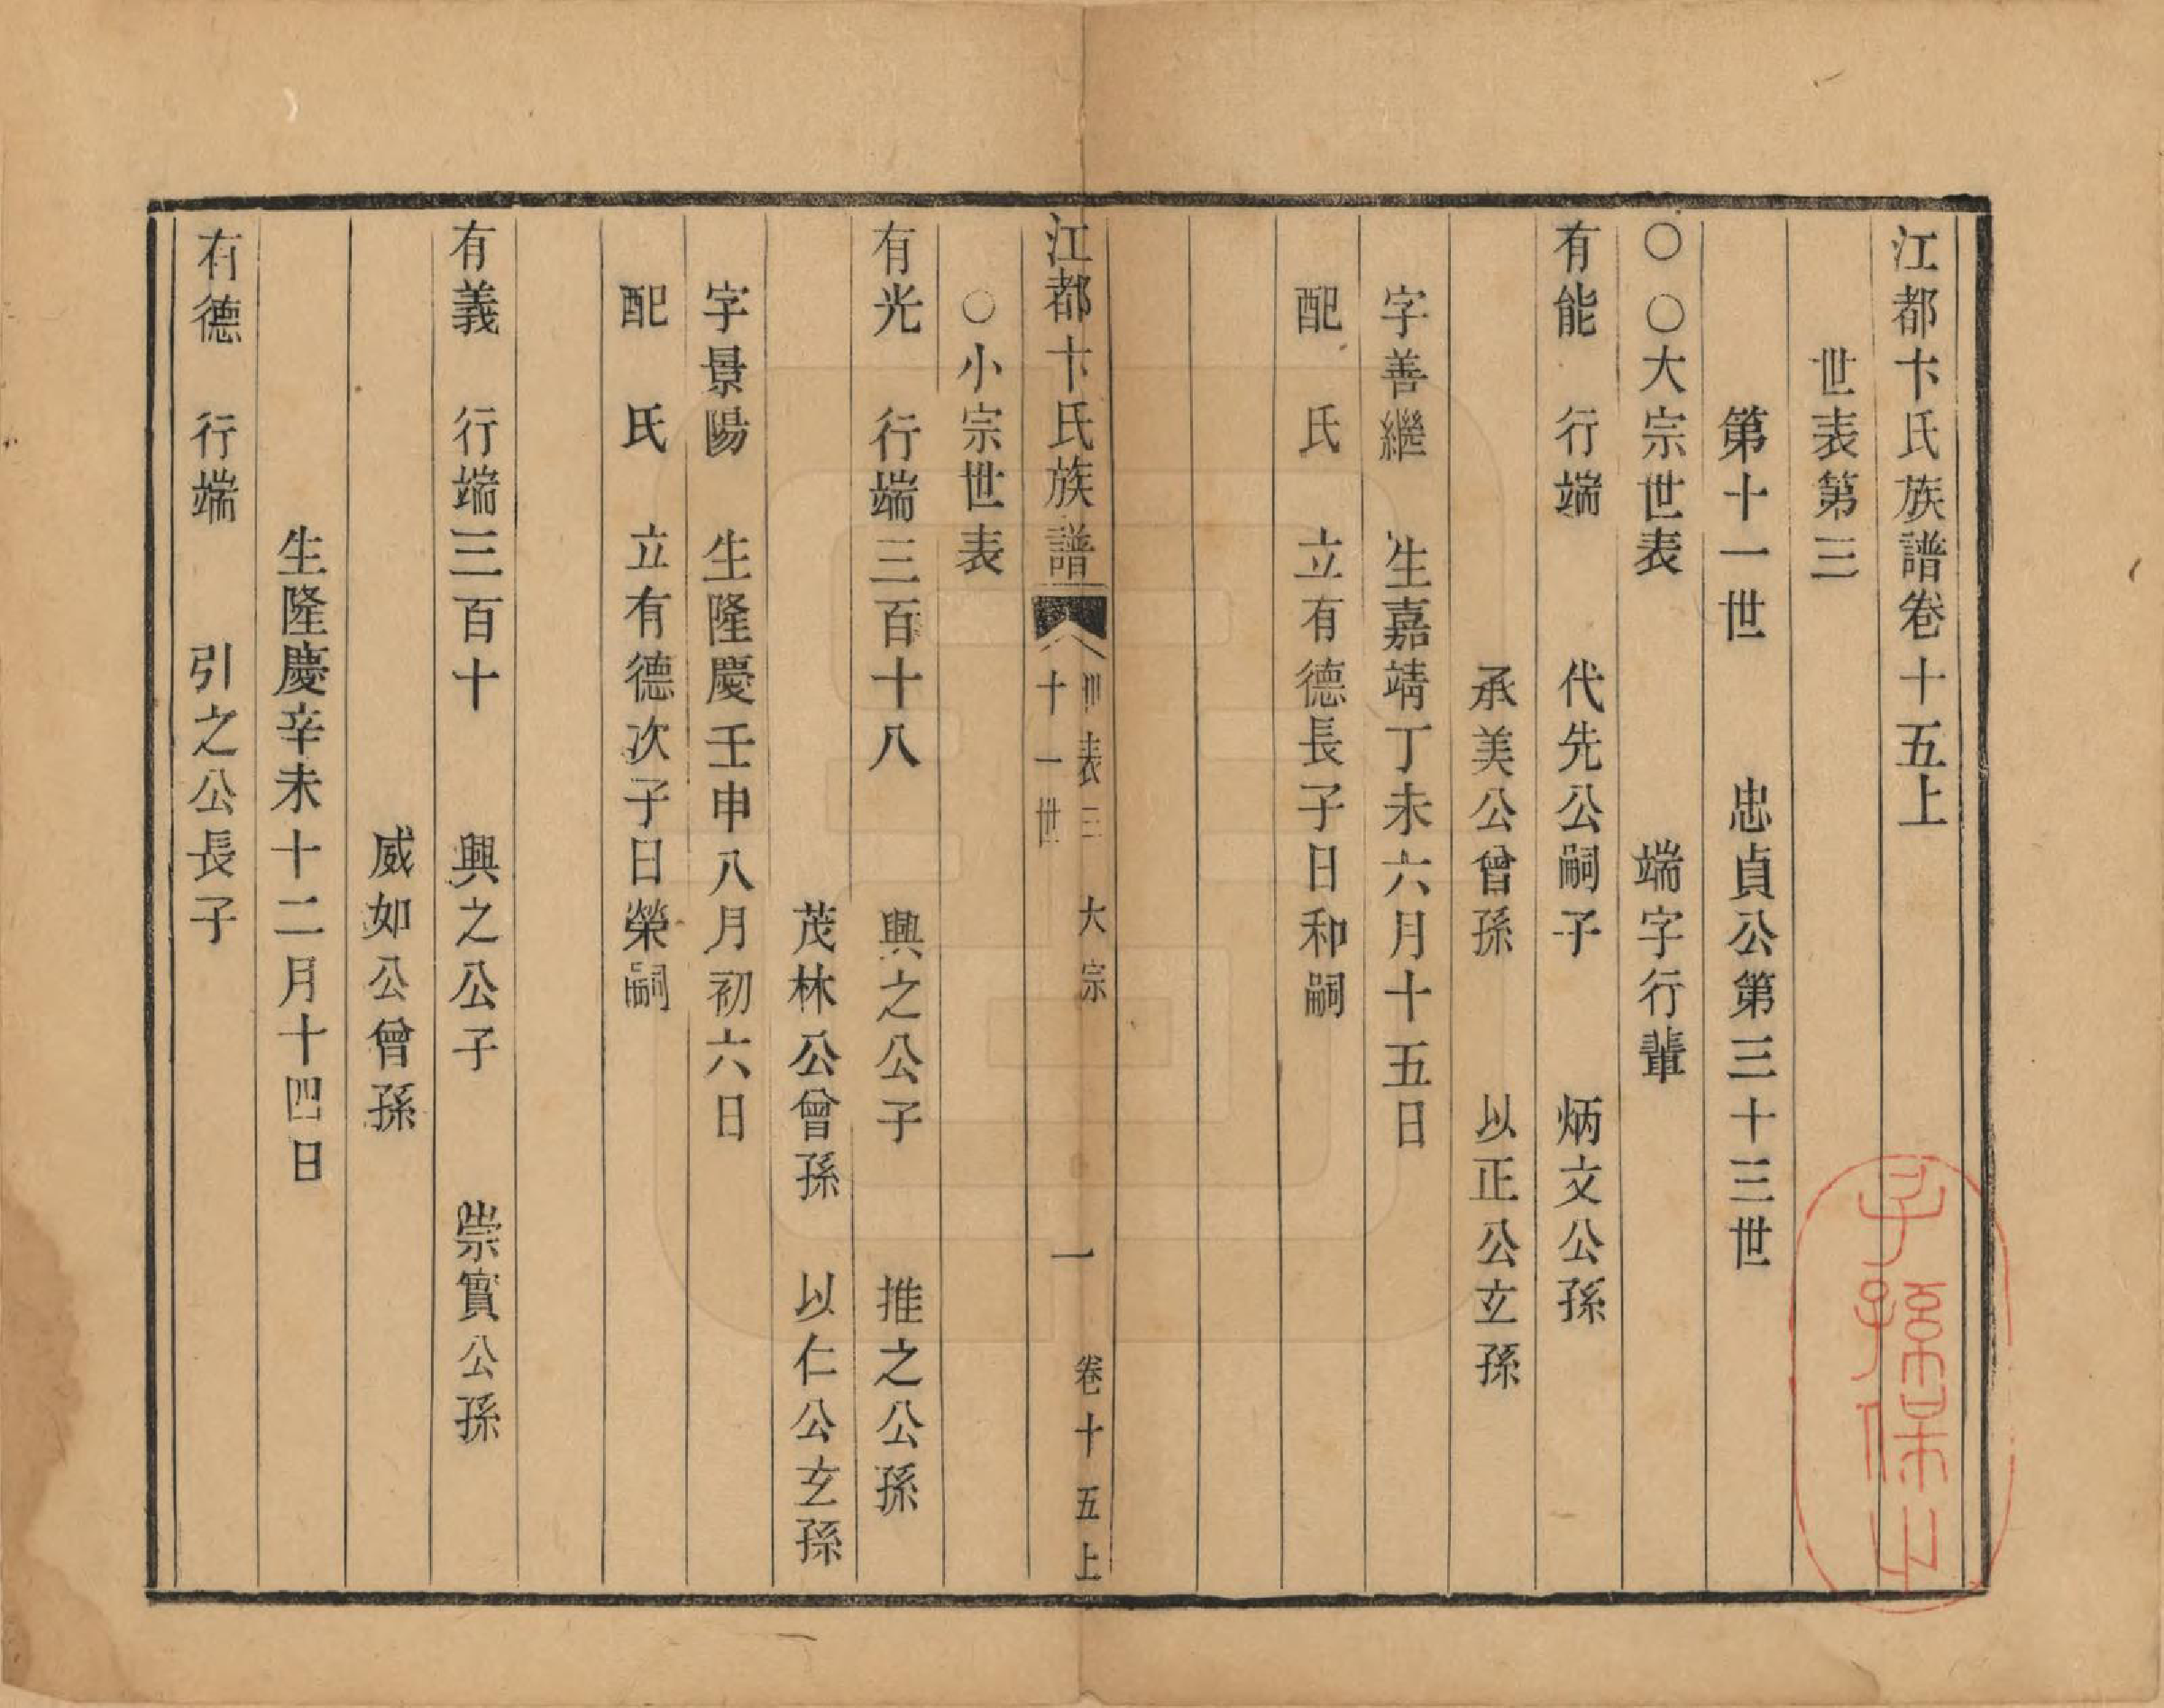 江都卞氏族譜卷十五上
世表第三
第十一世 忠貞公第三十三世
○○大宗世表 端字行輩
有能 行端 代先公嗣子 炳文公孫
承美公曾孫 以正公玄孫
字善繼 生嘉靖丁未六月十五日
配 氏 立有德長子日和嗣
江都卞氏族譜 世表三 大宗 十一世 一 卷十五上
○小宗世表
有光 行端三百十八 興之公子 推之公孫
茂林公曾孫 以仁公玄孫
字景陽 生隆慶壬申八月初六日
配 氏 立有德次子日榮嗣
有義 行端三百十 興之公子 崇實公孫
威如公曾孫
生隆慶辛未十二月十四日
有德 行端 引之公長子
子孫保之